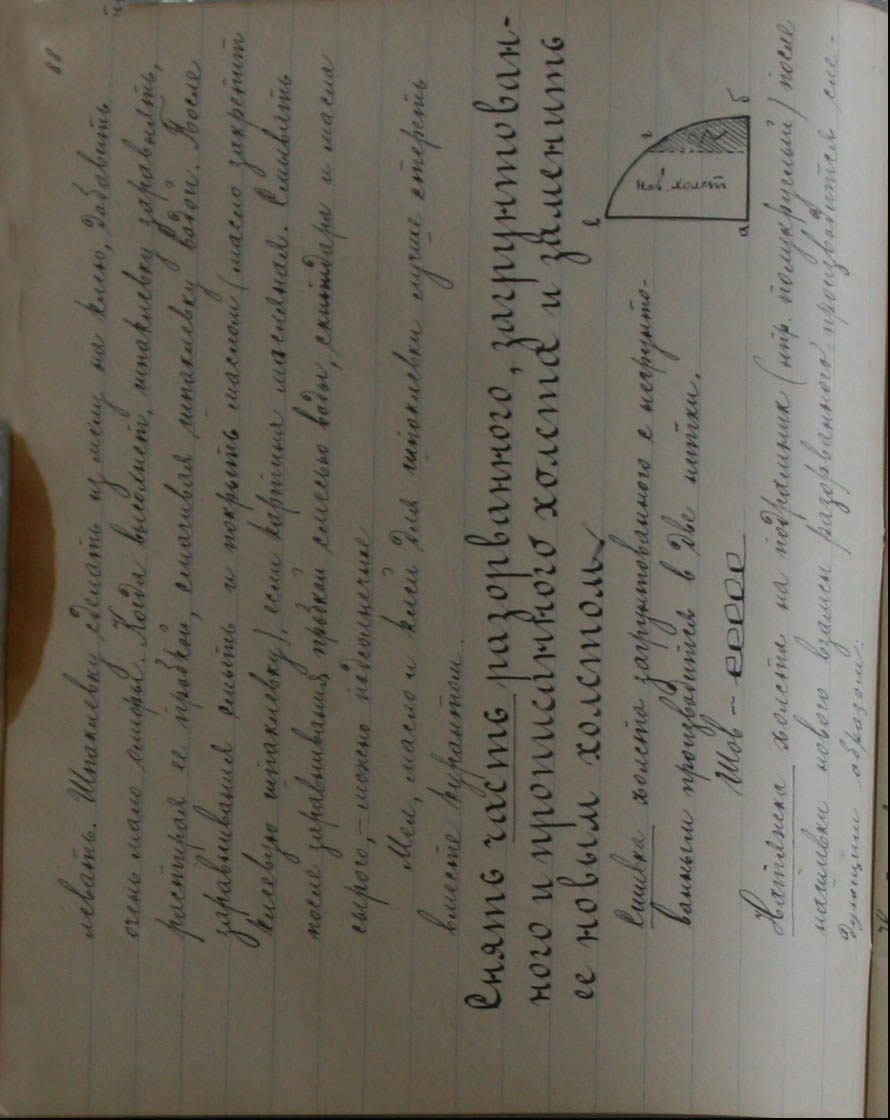 88
левать. Шпаклевку сделать из мелу на клею, добавить
очень мало олифы. Когда высохнет, шпаклевку заравнять,
растирая ее пробкой, смачивая шпаклевку водой. После
заравнивания смыть и покрыть маслом (масло закрепит
клеевую шпаклевку), если картина масляная. Смывать
после заравнивания пробкой смесью воды, скипидара и масла
сырого, – можно подсолнечное
Мел, масло и клей для шпаклевки лучше стереть
вместе курантом.
Снять часть разорванного, загрунтован-
ного и прописанного холста и заменить
ее новым холстом
Сшивка холста загрунтованного с негрунто-
ванным производится в две нитки.
Шов –
в
г
нов. холст
а
б
Натяжка холста на подрамник (нпр. полукруглый) после
нашивки нового взамен разорванного производится сле-
дующим образом: